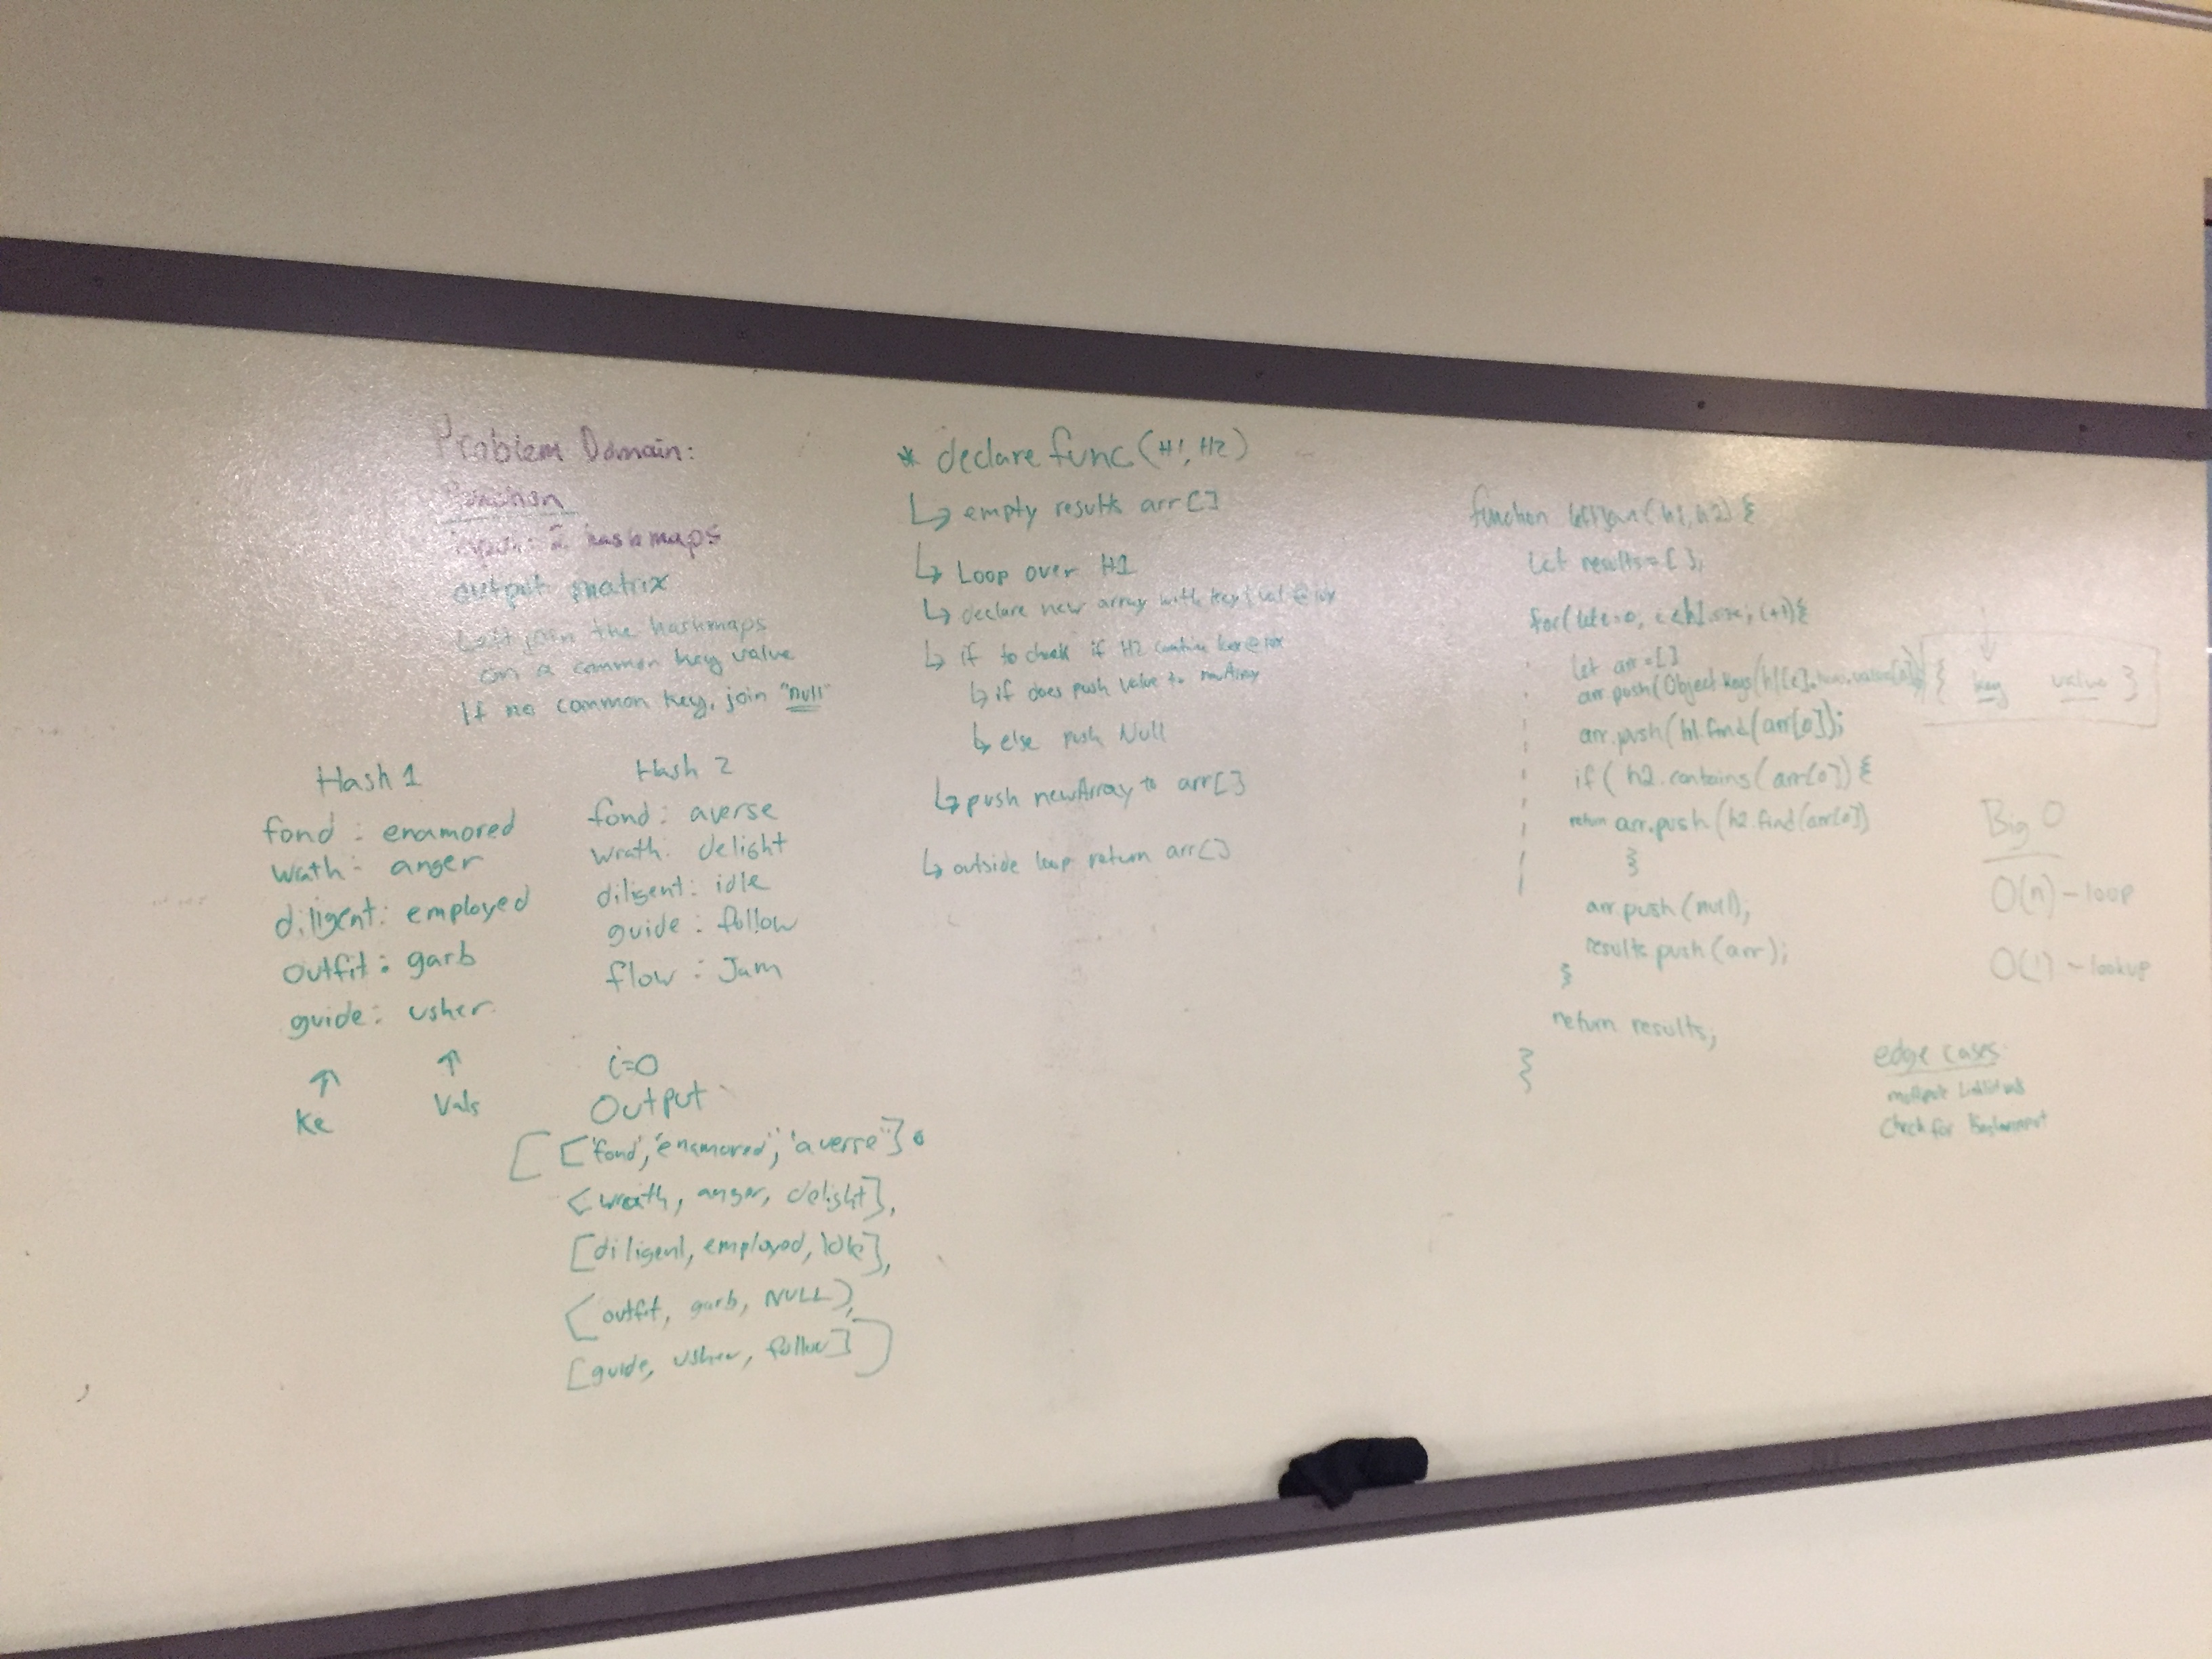 Problem Domain:
Function
input: 2 hashmaps
output: matrix
Left join the hashmaps
on a common key value
If no common key, join "null"
Hash 1
fond : enamored
wrath: anger
diligent: employed
outfit: garb
guide: usher
Ke
Vals
Hash 2
fond : averse
wrath: delight
diligent: idle
guide : follow
flow : Jam
i=0
Output
[ ['fond', 'enamored', 'averse'],
[wrath, anger, delight],
[diligent, employed, idle],
[outfit, garb, NULL],
[guide, usher, follow] ]
* declare func (H1, H2)
↳ empty results arr[]
↳ Loop over H1
↳ declare new array with key | val @ idx
↳ if to check if H2 contains key @ idx
↳ if does push value to newArray
↳ else push Null
↳ push newArray to arr[]
↳ outside loop return arr[]
function leftJoin(h1, h2) {
let results = [];
for(let i=0, i<h1.size, i+1){
let arr = []
arr.push(Object.keys(h1[i]
arr.push(h1.find(arr[0]);
if ( h2.contains( arr[0]) {
return arr.push(h2.find(arr[0])
}
arr.push(null);
results.push(arr);
}
return results;
}
{ key value }
Big O
O(n) - loop
O(1) - lookup
edge cases
multiple
Check for